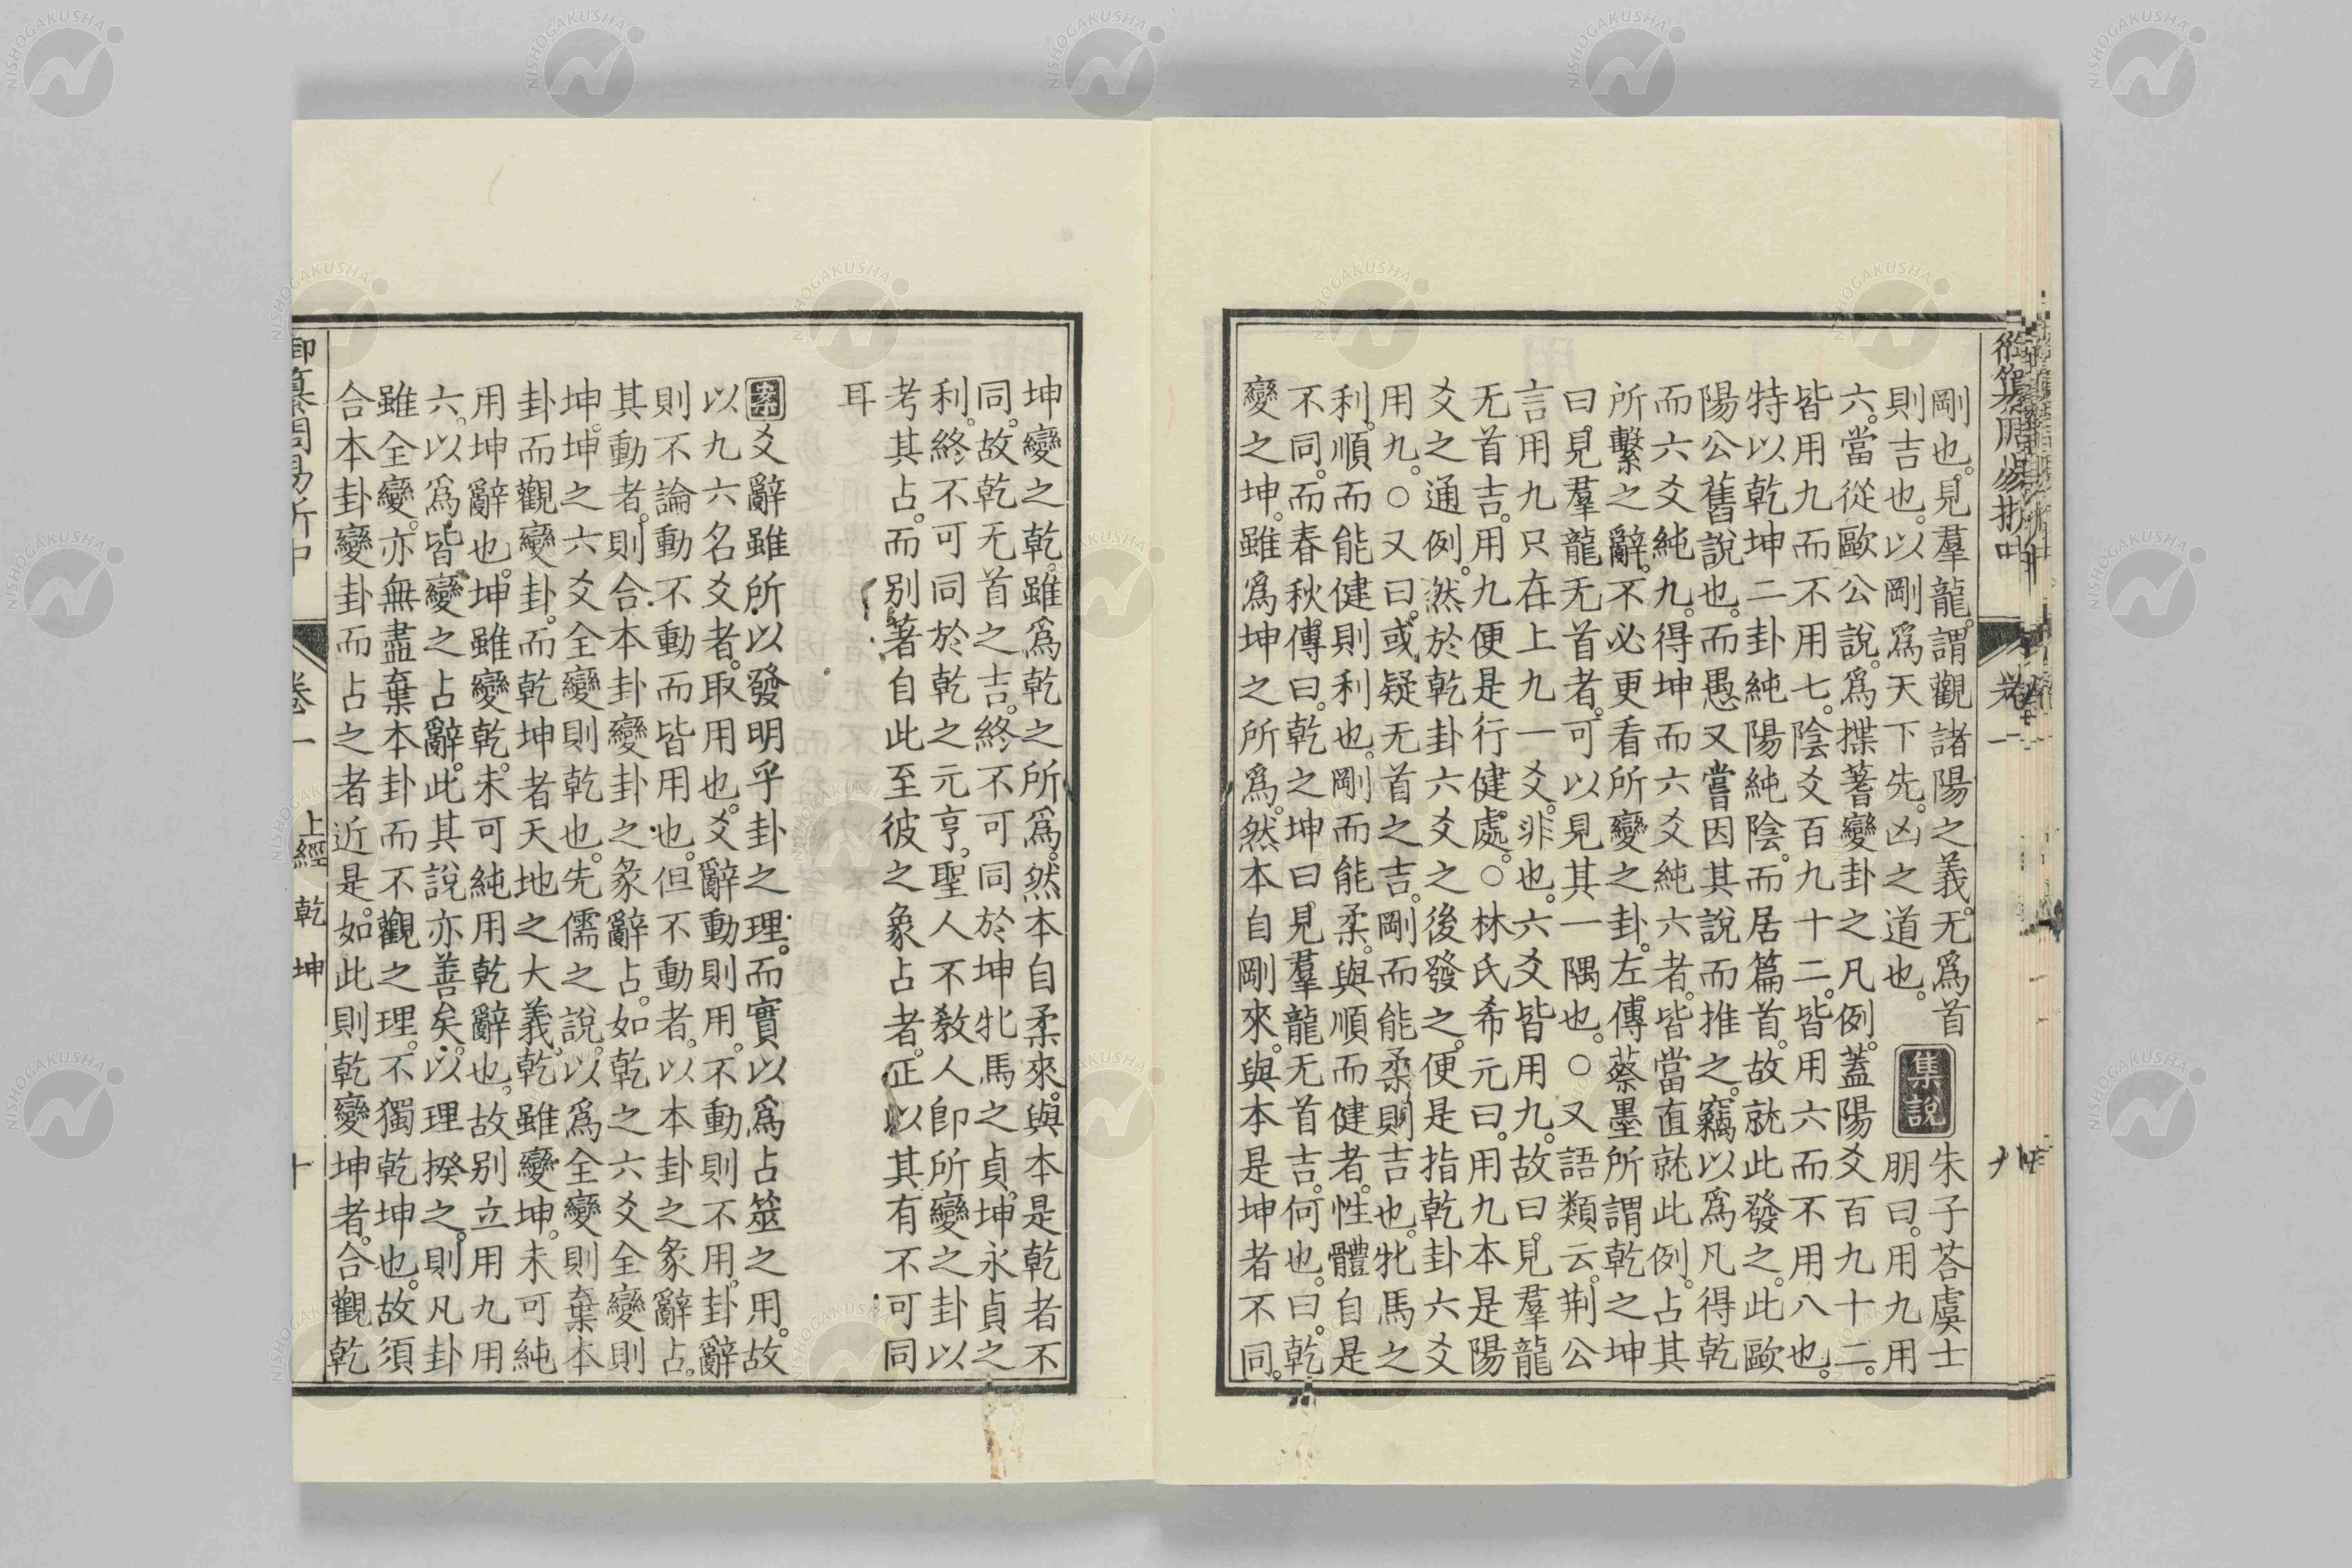 剛也。見羣龍。謂觀諸陽之義。无爲首
則吉也。以剛爲天下先。凶之道也。
集說
朱子荅虞士
朋曰。用九用
六。當從歐公說。爲揲蓍變卦之凡例。蓋陽爻百九十二。
皆用九而不用七。陰爻百九十二。皆用六而不用八也。
特以乾坤二卦純陽純陰。而居篇首。故就此發之。此歐
陽公舊說也。而愚又嘗因其說而推之。竊以爲凡得乾
而六爻純九。得坤而六爻純六者。皆當直就此例。占其
所繫之辭。不必更看所變之卦。左傳蔡墨所謂乾之坤
曰。見羣龍无首者。可以見其一隅也。○又語類云。荆公
言用九只在上九一爻。非也。六爻皆用九。故曰。見羣龍
无首吉。用九便是行健處。○林氏希元曰。用九本是陽
爻之通例。然於乾卦六爻之後發之。便是指乾卦六爻
用九。○又曰。或疑无首之吉。剛而能柔則吉也。牝馬之
利。順而能健則利也。剛而能柔。與順而健者。性體自是
不同。而春秋傳曰。乾之坤曰。見羣龍无首吉。何也。曰。乾
變之坤。雖爲坤之所爲。然本自剛來。與本是坤者不同。
坤變之乾。雖爲乾之所爲。然本自柔來。與本是乾者不
同。故乾无首之吉。終不可同於坤牝馬之貞。坤永貞之
利。終不可同於乾之元亨。聖人不敎人卽所變之卦以
考其占。而别著自此至彼之象占者。正以其有不可同
耳
案爻辭雖所以發明乎卦之理。而實以爲占筮之用。故
以九六名爻者。取用也。爻辭動則用。不動則不用。卦辭
則不論動不動而皆用也。但不動者。以本卦之彖辭占。
其動者。則合本卦變卦之彖辭占。如乾之六爻全變則
坤。坤之六爻全變則乾也。先儒之說。以爲全變則棄本
卦而觀變卦。而乾坤者天地之大義。乾雖變坤。未可純
用坤辭也。坤雖變乾。未可純用乾辭也。故别立用九用
六。以爲皆變之占辭。此其說亦善矣。以理揆之。則凡卦
雖全變。亦無盡棄本卦而不觀之理。不獨乾坤也。故須
合本卦變卦而占之者近是。如此則乾變坤者。合觀乾
御纂周易折中 卷一 上經 乾 坤 十
NISHOGAKUSHA